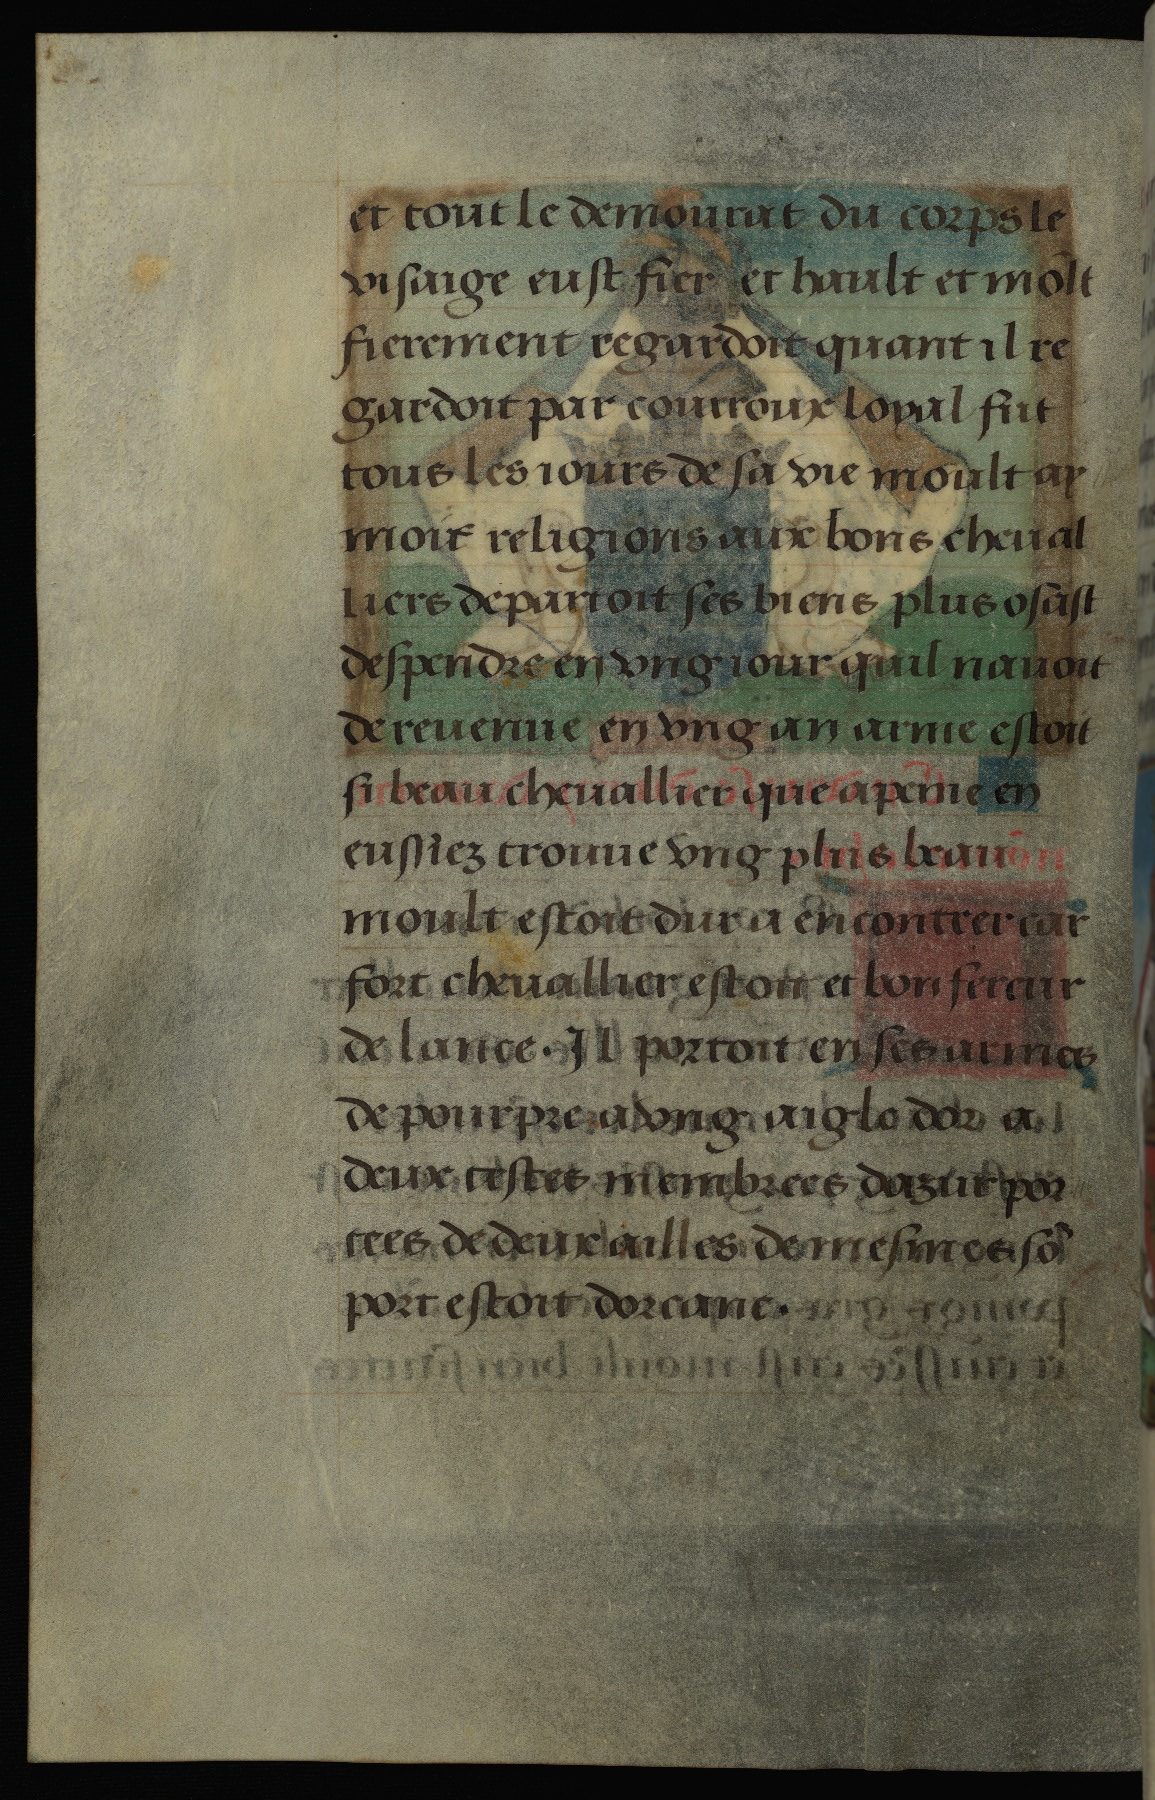 et tout le demourat du corps le
visaige eust fier et hault et mōlt
fierement regardoit quant il re
gardoit par courroux loyal fut
tous les iours de sa vie moult ay
moit religions aux bons cheual
liers departoit ses biens plus osāst
despendre en vng iour quil nauoit
de reuenue en vng an arme estoit
si beau cheuallier que a peine en
eussiez trouue vng plus beau
moult estoit dur a encontrer car
fort cheuallier estoit et bon fereur
de lance. Il portoit en ses armes
de pourpre a vng aigle dor a
deux testes membrees dazur por
tees de deux ailles de mesmes sō
port estoit dorcanie.